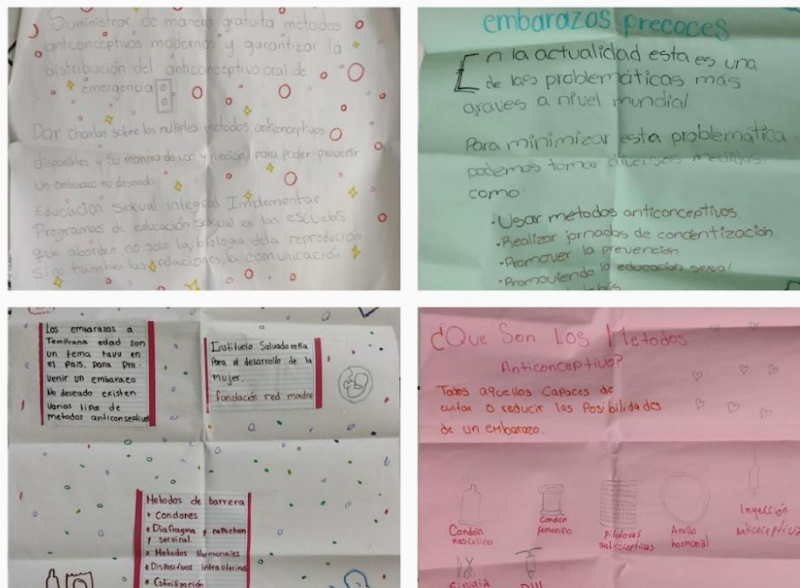 Suministrar de manera gratuita metodos
anticonceptivos modernos y garantizar la
distribución del anticonceptivo oral de
emergencia
Dar charlas sobre los multiples metodos anticonceptivos
disponibles y su manera de uso y función para poder prevenir
un embarazo no deseado
Educación sexual integral Implementar
Programas de educación sexual en las escuelas
que aborden no solo la biologia de la reproducción
sino tambien las relaciones, la comunicación
embarazos precoces
En la actualidad esta es una
de las problemáticas más
graves a nivel mundial
Para minimizar esta problematica
podemos tomar diversas medidas
como:
• Usar métodos anticonceptivos.
• Realizar jornadas de concentización
• Promover la prevención
• Promoviendo la educación sexual
Los embarazos a
Temprana edad son
un tema tavu en
el pais, para Pre-
venir un embarazo
No deseado existen
Varios tipos de
metodos anticonseptivos
Institucio Salvadoreña
Para el desarrollo de la
mujer.
Fundación red madre
Metodos de barrera
• Condones
• Diafragma y
y servical.
• Metodos Hormonales
• Dispositivos Intrauterino
• Esterilización
¿Que Son Los Metodos
Anticonceptivo?
Todos aquellos Capaces de
evitar o reducir las Posibilidades
de un embarazo.
Condón
masculico
Condón
femenino
Pildoras
anticoceptivas
Anillo
hormonal
Inyección
Anticoceptiva
Cirugia
DIU